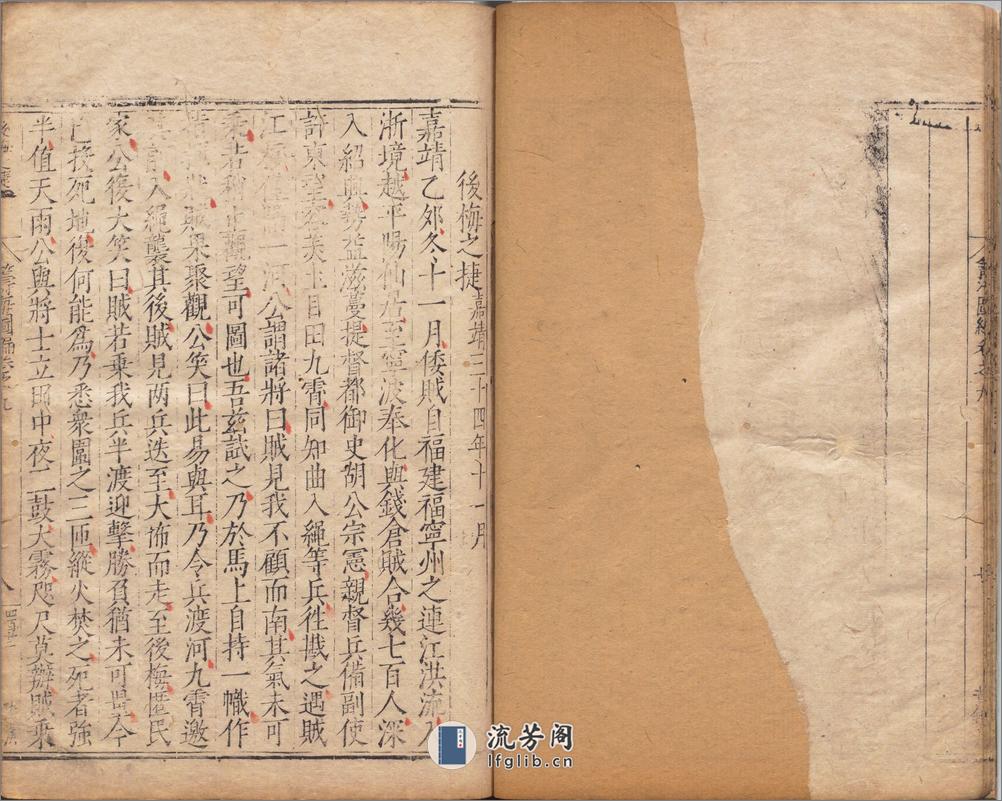 後梅之捷嘉靖三十四年十一月
嘉靖乙卯冬十一月倭賊自福建福寧州之連江洪流入
浙境越平陽仙居至寧波奉化與錢倉賊合幾七百人深
入紹興勢益滋蔓提督都御史胡公宗憲親督兵備副使
許東望 知 田九霄同知曲入繩等兵徃戢之遇賊
江 一河公謂諸將曰賊見我不顧而南其氣未可
乘若稍 觀望可圖也吾兹試之乃於馬上自持一幟作
賊果聚觀公笑曰此易與耳乃令兵渡河九霄邀
入繩襲其後賊見两兵迭至大怖而走至後梅匿民
家公復大笑曰賊若乗我兵半渡迎擊勝負猶未可 今
已投死地復何能爲乃悉衆圍之三匝縱火焚之死者強
半值天雨公與將士立雨中夜二鼓大霧咫尺莫辦賊乘
籌海圖編卷之九
流芳阁
lfglib.cn